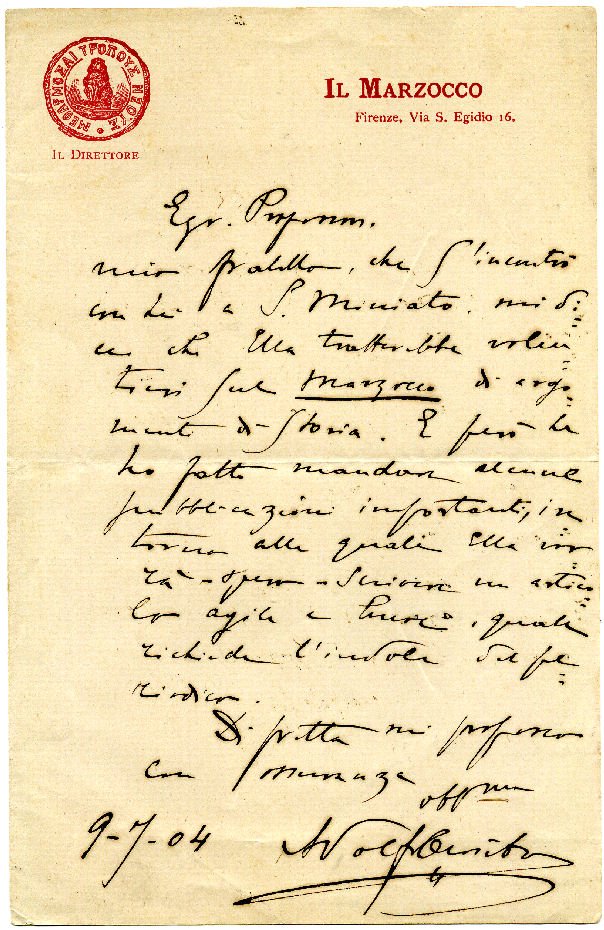 ΜΕΘΑΡΜΟΣΑΙ ΤΡΟΠΟΥΣ ΝΕΟΥΣ
IL DIRETTORE
IL MARZOCCO
Firenze, Via S. Egidio 16.
Egr. Professore,
mio fratello, che s'incontrò
con Lei a S. Miniato, mi di-
ce che Ella tratterebbe volen-
tieri sul Marzocco di argo-
menti di Storia. E però Le
ho fatto mandare alcune
pubblicazioni importanti, in-
torno alle quali Ella vor-
rà - spero - scrivere un artico-
lo agile e breve, quale
richiede l'indole del pe-
riodico.
Di fretta mi professo
con osservanza
obbmo
9-7-04
Adolfo Orvieto